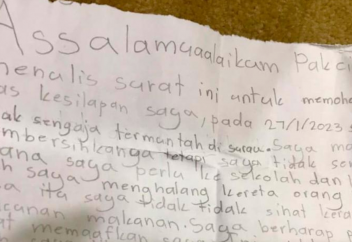 Assalamuaalaikum Pakci
menulis surat ini untuk memoho
as kesilapan saya, pada 27/1/2023 s
ak sengaja termuntah di surau. Saya ma
mbersihkanga tetapi saya tidak sem
ana saya perlu ke sekolah dan l
h saya menghalang kereta orang
a itu saya tidak tidak sihat kera
canan makanan. Saya berharap p
at memaafkan saya